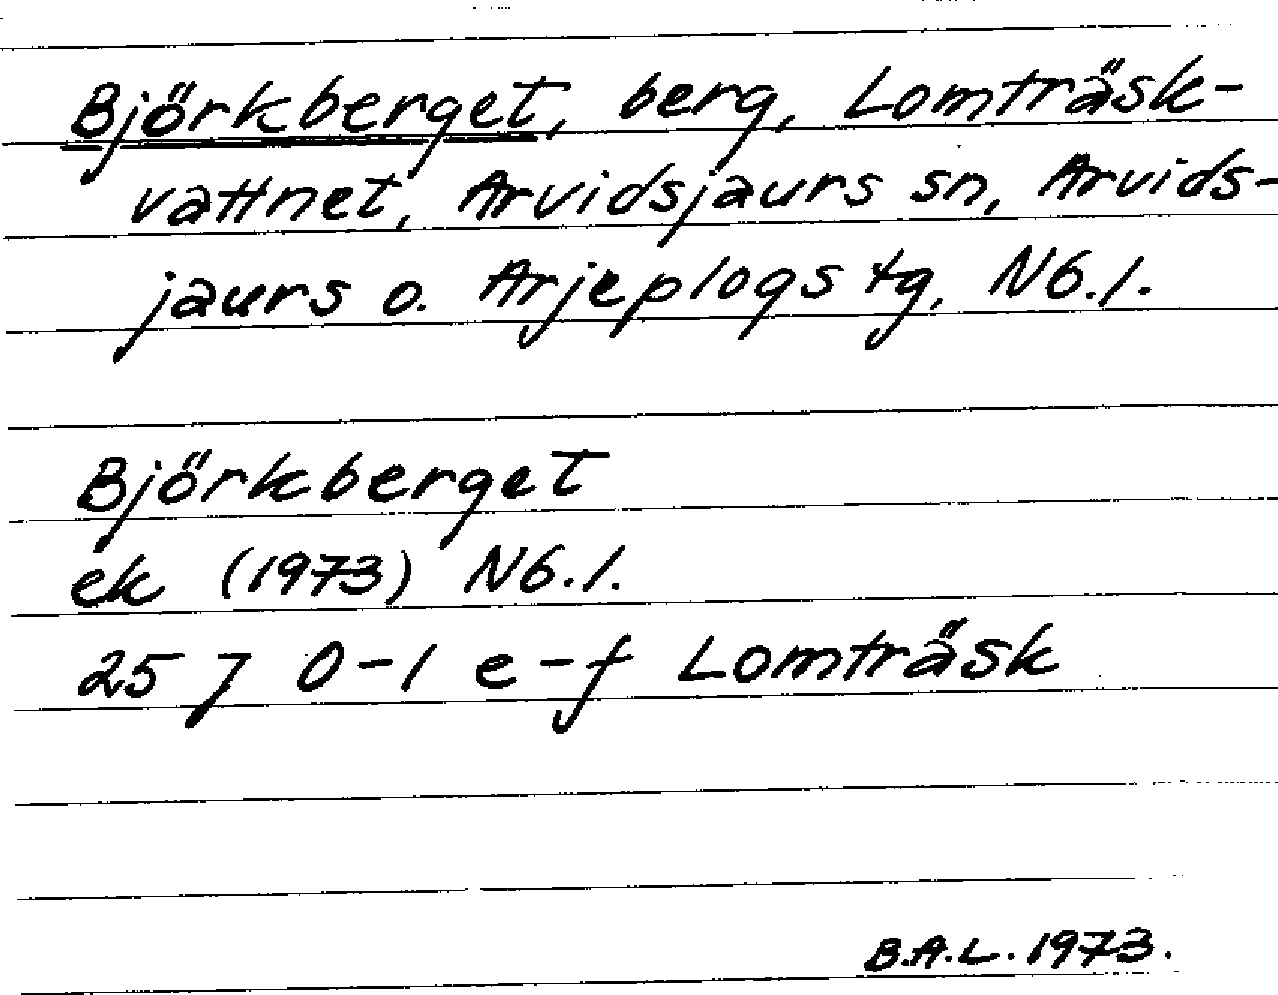 Björkberget, berg, Lomträsk-
vattnet, Arvidsjaurs sn, Arvids-
jaurs o. Arjeplogs tg, Nb.l.
Björkberget
ek (1973) Nb.l.
25 J 0-1 e-f Lomträsk
B.A.L. 1973.